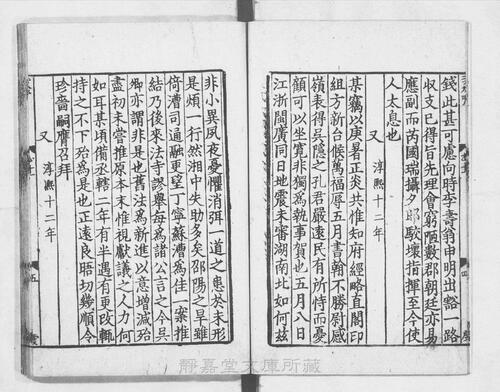 錢此甚可慮向時李壽翁申明出豁一路
収支已得旨先理會窮陋數郡朝廷亦易
應副而芮國瑞攝夕耶歇壞指揮至今使
人太息也
又 淳熙十二年
某竊以庚暑正炎共惟知府經略直閣印
組方新台候萬福辱五月書翰不勝尉感
嶺表得吳隠之孔君嚴遠民有所恃而憂
顧可以坐寛非獨為執事賀也五月八日
江浙閩廣同日地震未審湖南北如何茲
非小異夙夜憂懼消弭一道之患於未形
是煩一行然湘中失助多矣邵陽之旱雖
倚漕司通融更望丁寧蘇漕為佳一案推
結乃後來法寺謬舉每為諸公言之今吳
卿亦謂非是也舊法為新進以意增減殆
盡初未嘗推原本末惟視獻議之人力何
如耳某頃備丞轄二年有半遇有更改輒
持之不下殆為是也正遠良晤切幾順令
珍嗇嗣膺召拜
又 淳熙十二年
五
静嘉堂文庫所蔵